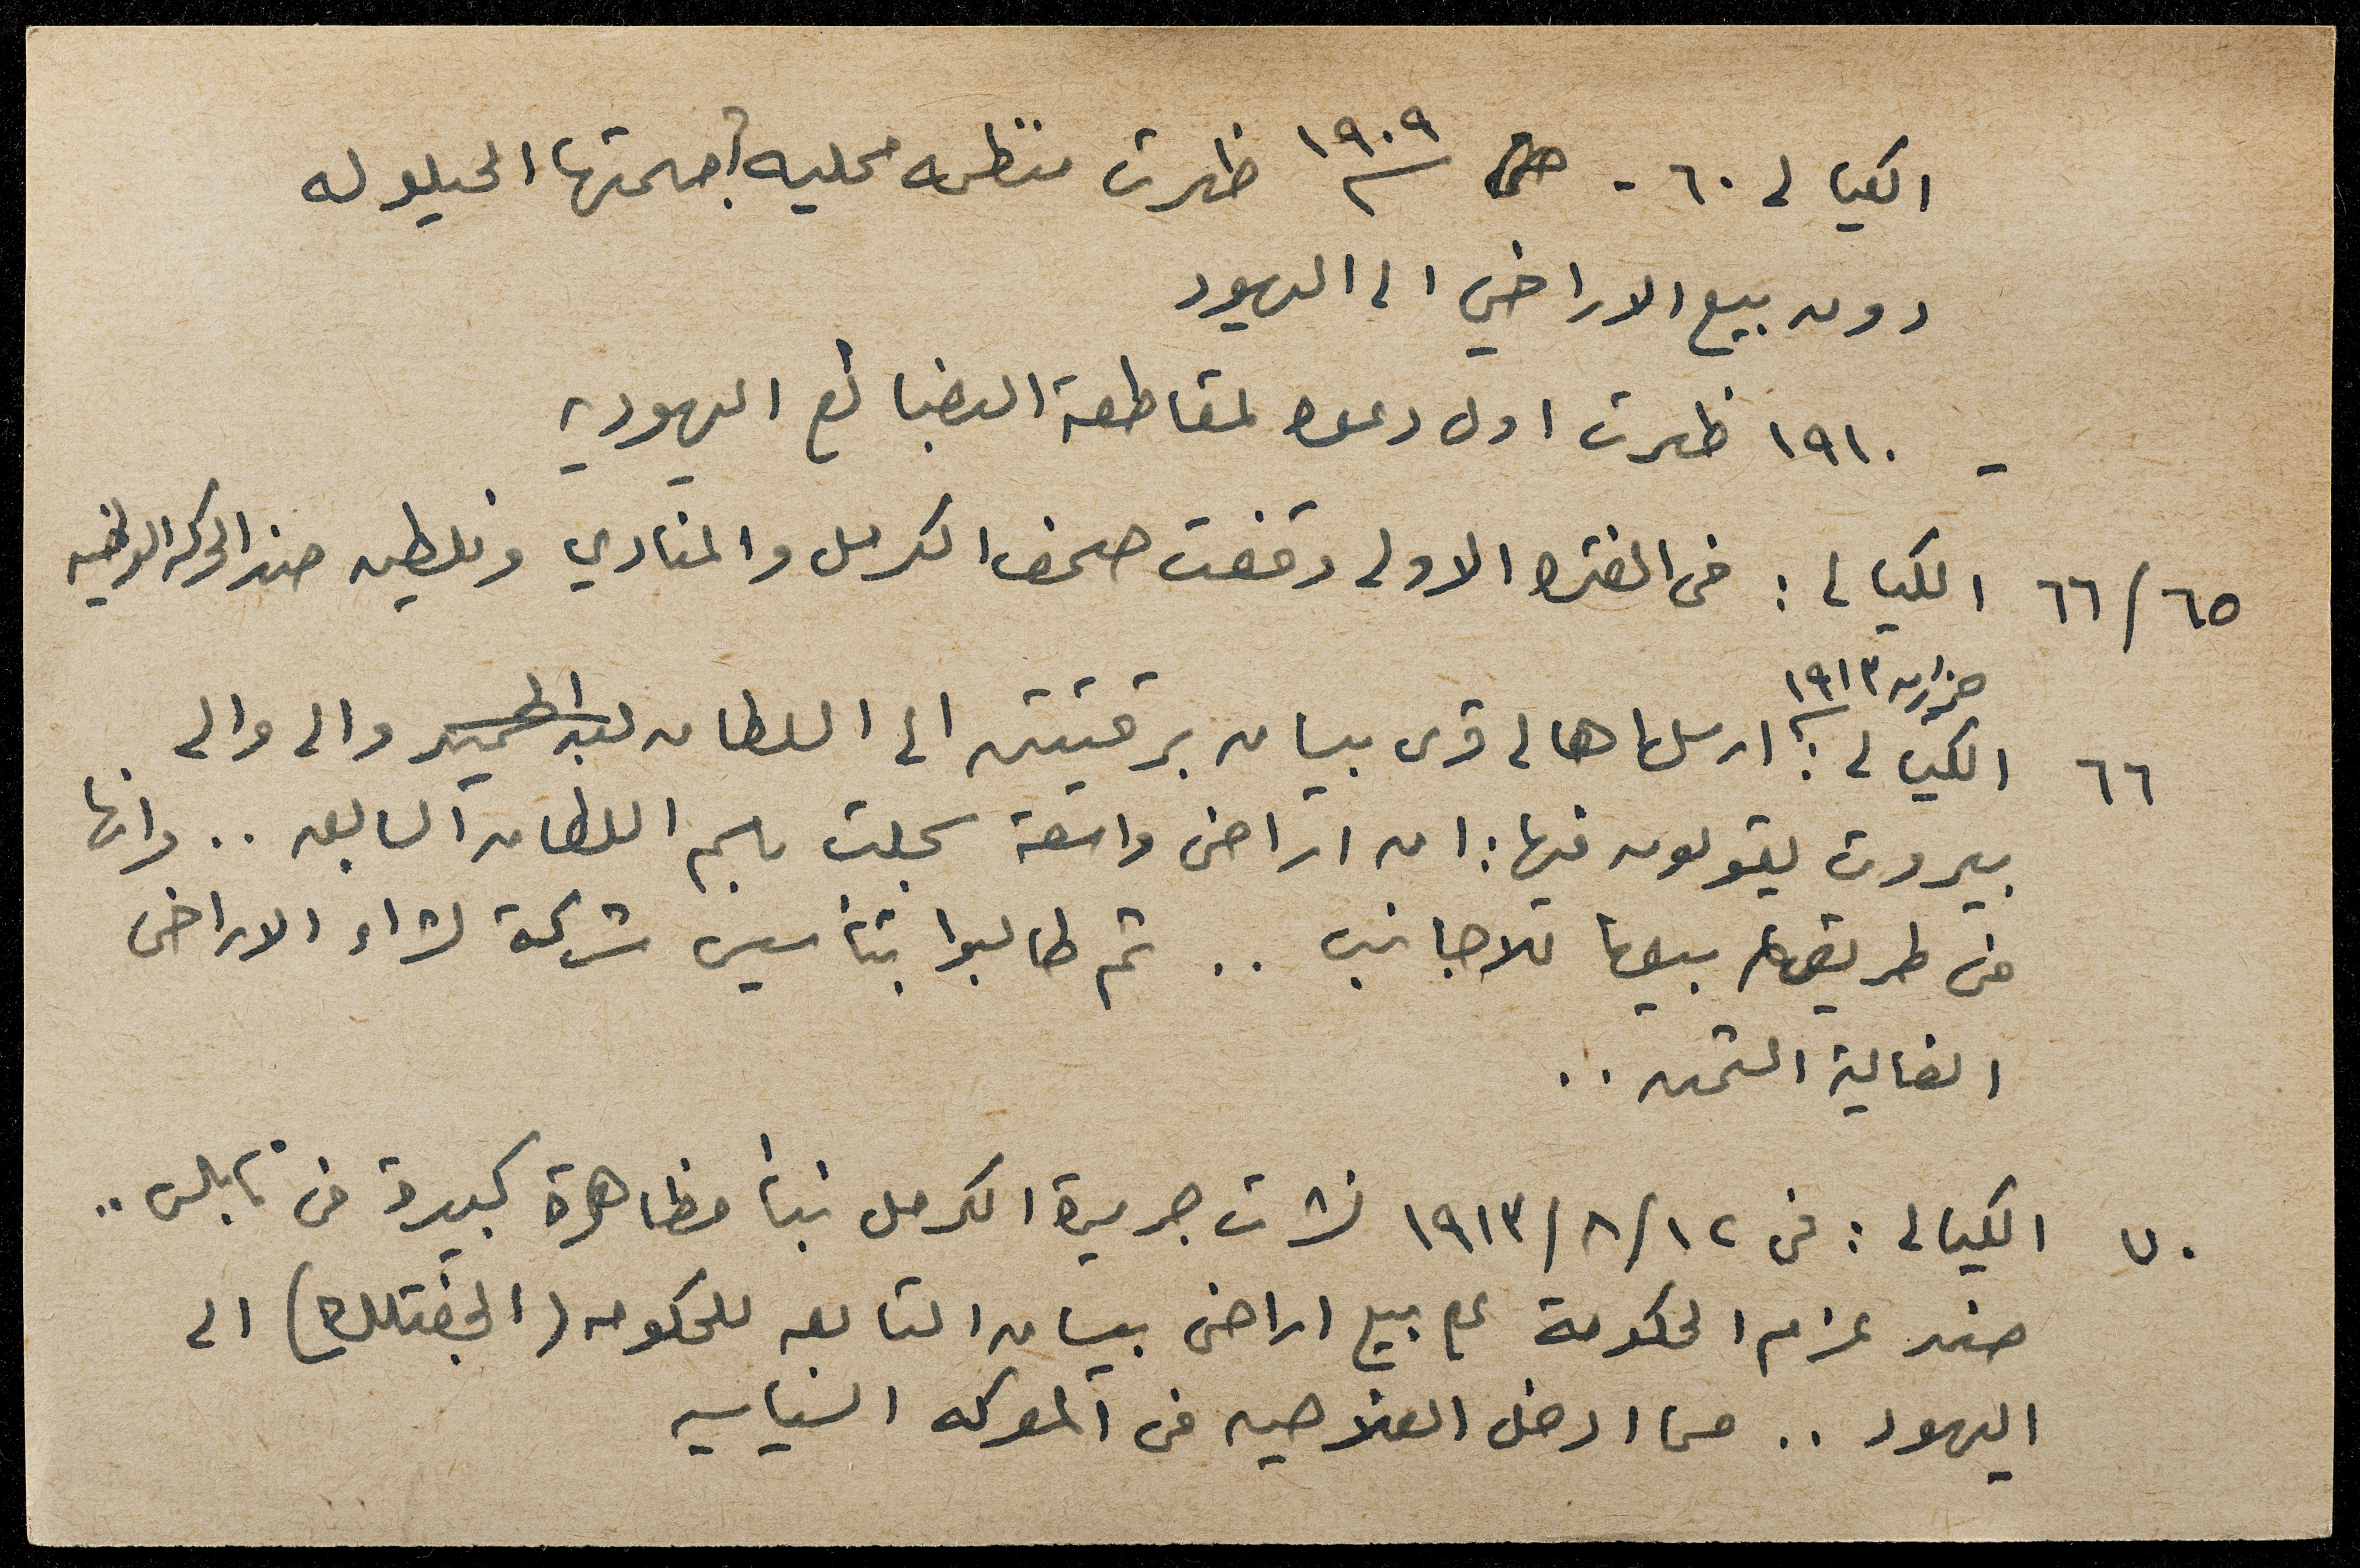 الكيالي ٦٠ - ١٩٠٩ ظهرت منظمه محليه مهمتها الحيلوله
دون بيع الاراضي الى اليهود
- ١٩١٠ ظهرت اول دعوه لمقاطعة البضائع اليهوديه
٦٦/٦٥ الكيالي : في الفتره الاولى وقفت صحف الكرمل والمنادي وفلسطين ضد الحركة الوطنيه
حزيران ١٩١٣
٦٦ الكيالي : ارسل اهالي قرى بيسان برقيتين الى السلطان عبد الحميد والى والي
بيروت يقولون فيها : ان اراضي واسعة سجلت باسم السلطان السابق .. وانها
في طريقها بيعها للاجانب .. ثم طالبوا بتأسيس شركة لشراء الاراضي
الغالية الثمن ..
٧٠ الكيالي : في ١٩١٣/٨/١٢ نشرت جريدة الكرمل نبأ مظاهرة كبيرة في نابلس ..
ضد عزام الحكومة على بيع اراضي بيسان التابعه للحكومه (الجفتلك) الى
اليهود .. مما ادخل الفلاحين في المعركه السياسيه